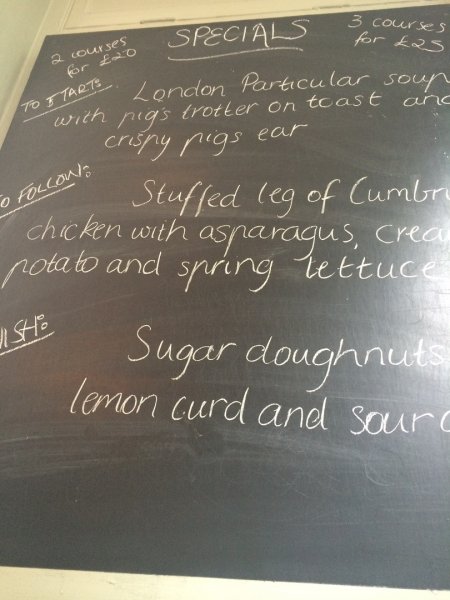 SPECIALS
2 courses
for £20
3 courses
for £25
TO START:
London Particular soup
with pig's trotter on toast and
crispy pigs ear
TO FOLLOW:
Stuffed leg of Cumbri
chicken with asparagus, crea
potato and spring lettuce
NISH:
Sugar doughnuts
lemon curd and sour c